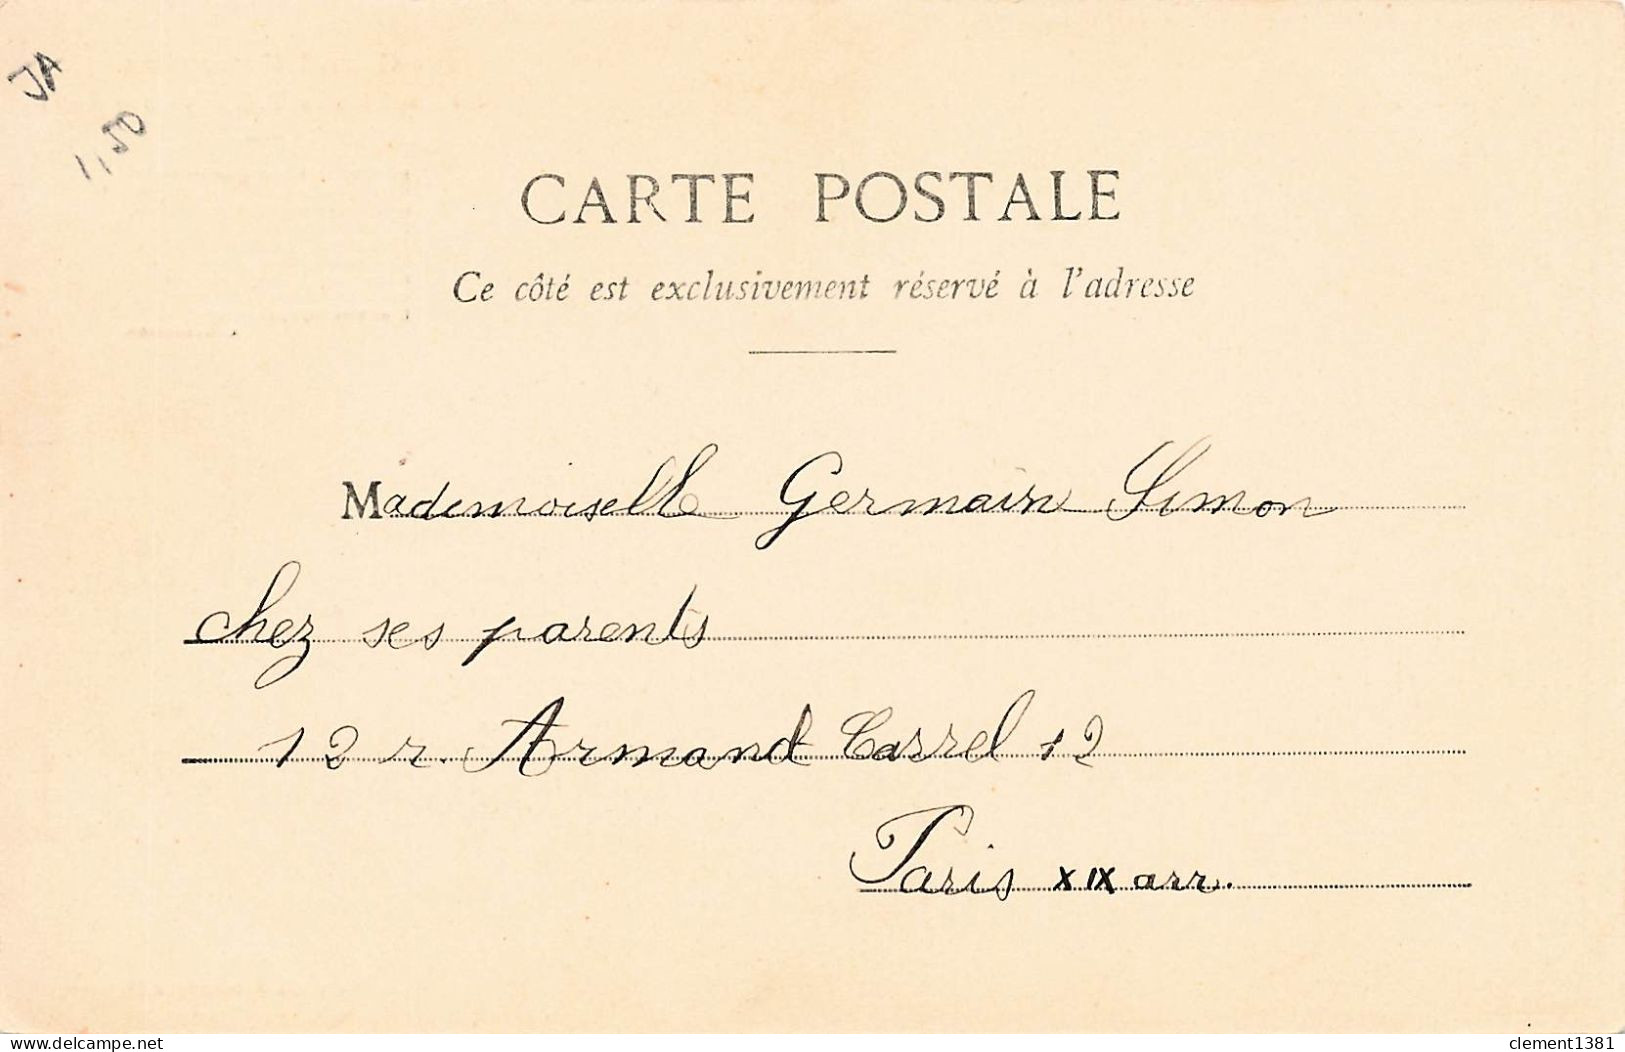 JA
1,50
CARTE POSTALE
Ce côté est exclusivement réservé à l'adresse
Mademoiselle Germain Simon
chez ses parents
12 r. Armand Carrel 12
Paris XIX arr.
www.delcampe.net
clement1381